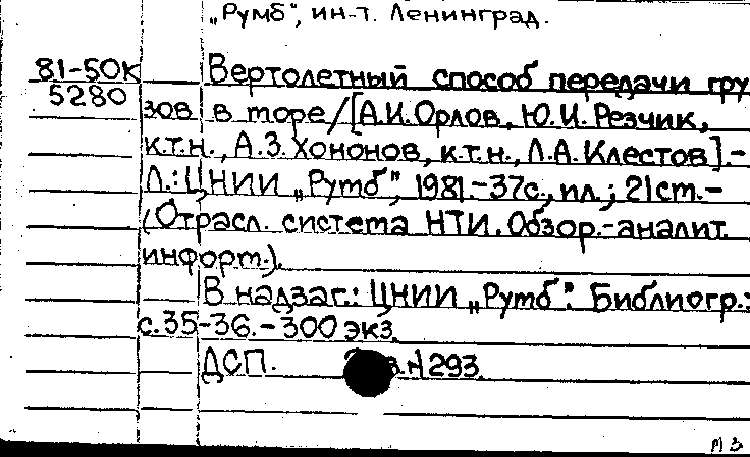 „Румб", ин-т. Ленинград.
81-50К Вертолетный способ передачи гру
5280 зов в море/[А.И.Орлов, Ю.И.Резчик,
к.т.н., А.З.Хононов, к.т.н., Л.А.Клестов].-
Л.: ЦНИИ „Румб", 1981.-37с., ил.; 21см.-
(Отрасл. система НТИ. Обзор.-аналит.
информ.).
В надзаг.: ЦНИИ „Румб". Библиогр.:
с.35-36.-300 экз.
ДСП. 293.